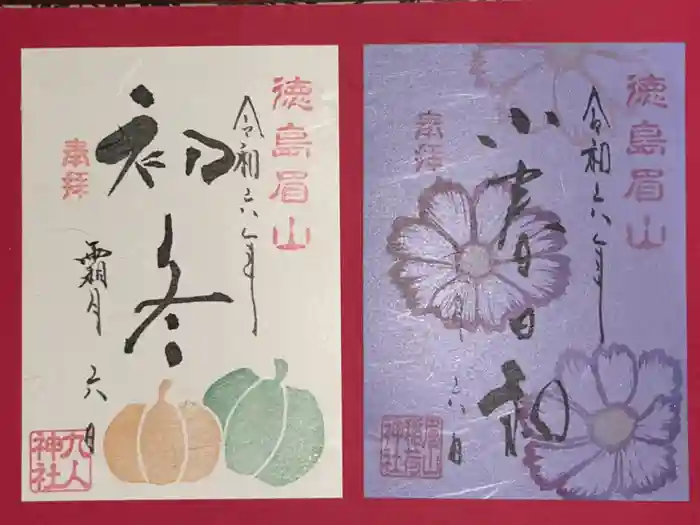 徳島眉山
令和六年
奉拝
初冬
霜月
六日
九人
神社
徳島眉山
令和六年
奉拝
小春日和
月
六日
眉山
稲荷
神社